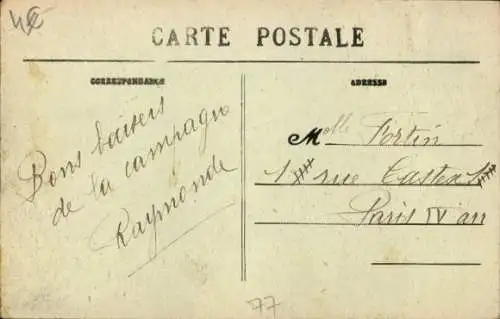 4€
CARTE POSTALE
CORRESPONDANCE
ADRESSE
Bons baisers
de la campagne
Raymonde
Melle Fortin
1 rue Castex
Paris IV arr
77